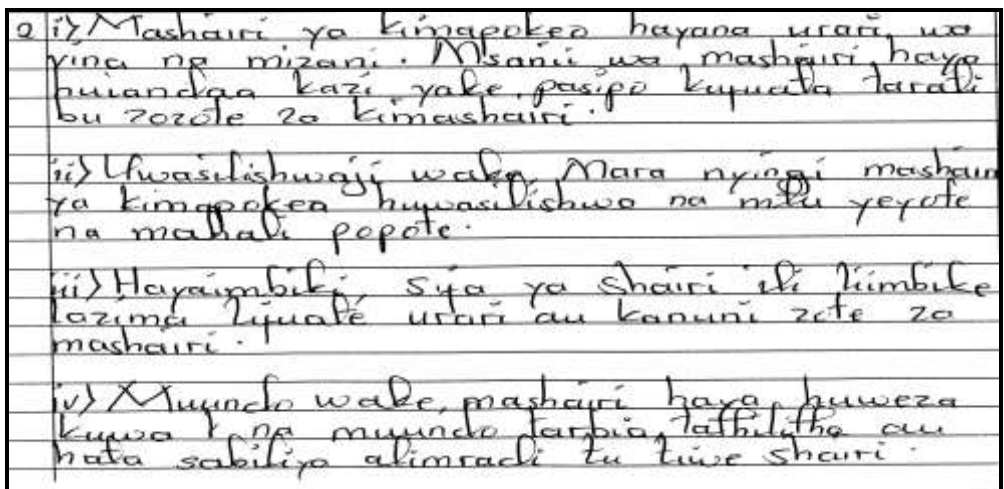 2 i) Mashairi ya kimapokeo hayana urari wa
vina na mizani. Msanii wa mashairi haya
huiandaa kazi yake pasipo kufuata tarati
bu zozote za kimashairi.
ii) Uwasilishwaji wake, Mara nyingi mashairi
ya kimapokeo huwasilishwa na mtu yeyote
na mahali popote.
iii) Hayaimbiki, sifa ya shairi ili liimbike
lazima lifuate urari au kanuni zote za
mashairi.
iv) Muundo wake, mashairi haya huweza
kuwa na muundo tarbia, tathilitha au
hata sabilia alimradi tu liwe shairi.